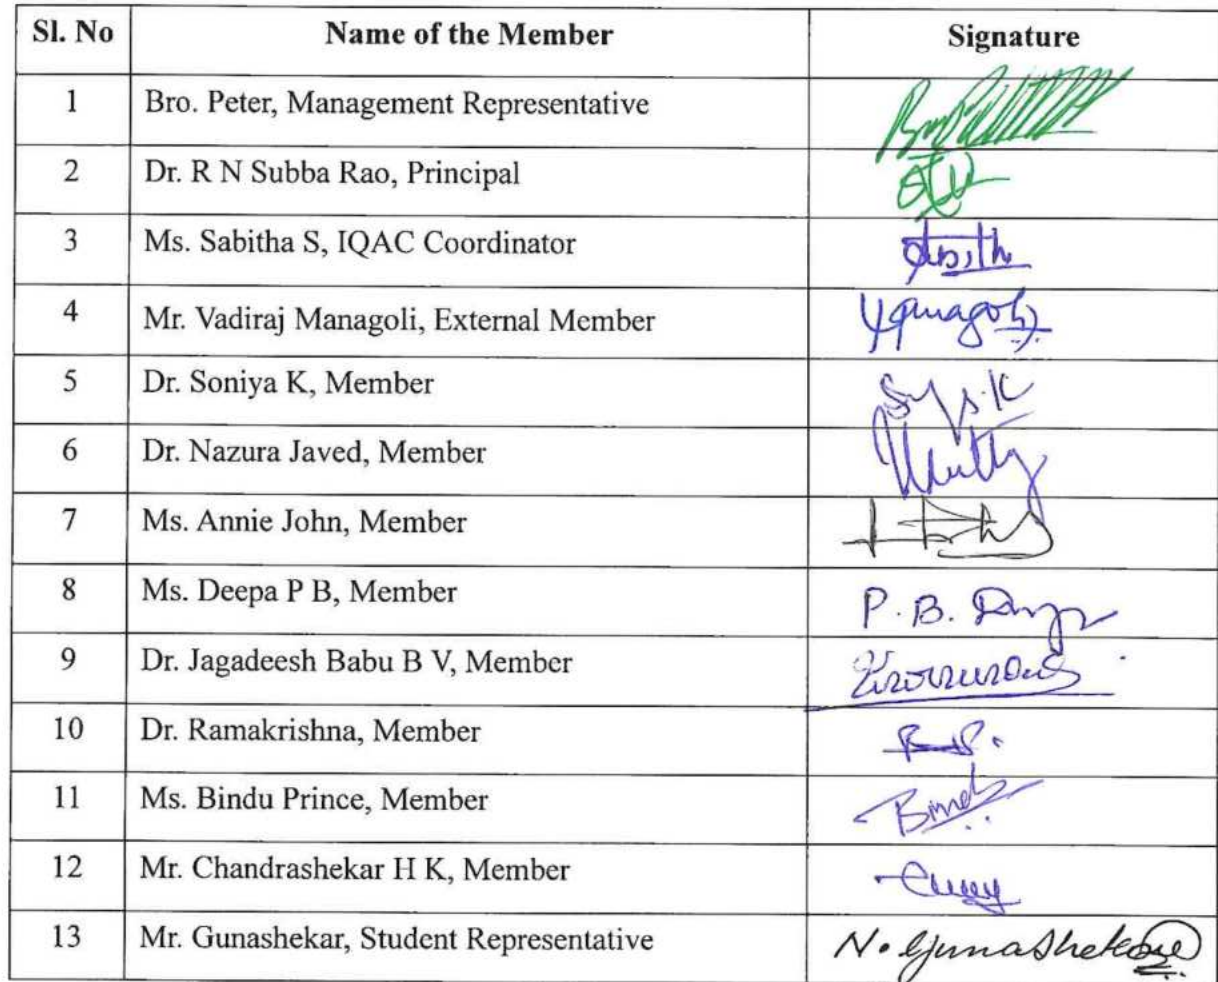 Sl. No Name of the Member Signature
1 Bro. Peter, Management Representative
2 Dr. R N Subba Rao, Principal
3 Ms. Sabitha S, IQAC Coordinator
4 Mr. Vadiraj Managoli, External Member
5 Dr. Soniya K, Member
6 Dr. Nazura Javed, Member
7 Ms. Annie John, Member
8 Ms. Deepa P B, Member P. B.
9 Dr. Jagadeesh Babu B V, Member
10 Dr. Ramakrishna, Member
11 Ms. Bindu Prince, Member
12 Mr. Chandrashekar H K, Member
13 Mr. Gunashekar, Student Representative